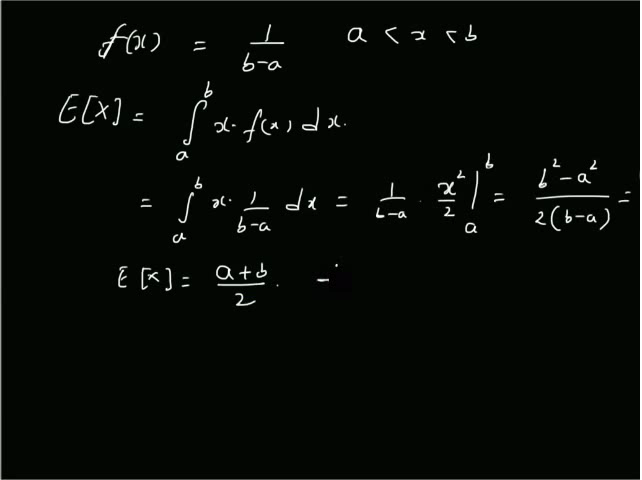 f(x) = 1/(b-a)   a < x < b
E[X] = ∫_a^b x · f(x) dx.
= ∫_a^b x · 1/(b-a) dx = 1/(b-a) · x²/2 |_a^b = (b² - a²)/(2(b-a)) =
E[x] = (a+b)/2 . -